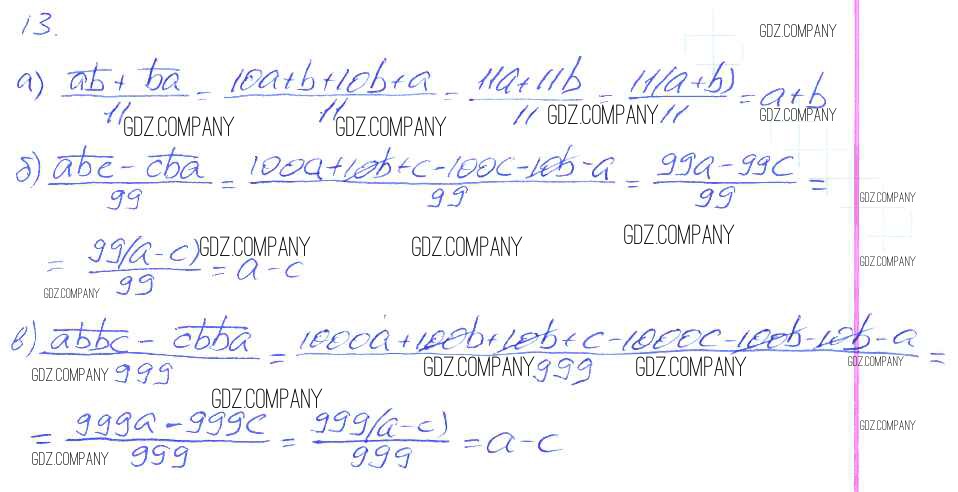 13.
GDZ.COMPANY
а) (ab + ba)/11 = (10a+b+10b+a)/11 = (11a+11b)/11 = 11(a+b)/11 = a+b
GDZ.COMPANY GDZ.COMPANY GDZ.COMPANY GDZ.COMPANY
б) (abc - cba)/99 = (100a+10b+c-100c-10b-a)/99 = (99a-99c)/99 =
GDZ.COMPANY
= 99(a-c)/99 = a-c
GDZ.COMPANY GDZ.COMPANY GDZ.COMPANY GDZ.COMPANY
GDZ.COMPANY
в) (abbc - cbba)/999 = (1000a+100b+10b+c-1000c-100b-10b-a)/999 =
GDZ.COMPANY GDZ.COMPANY GDZ.COMPANY GDZ.COMPANY
GDZ.COMPANY
= (999a-999c)/999 = 999(a-c)/999 = a-c
GDZ.COMPANY GDZ.COMPANY